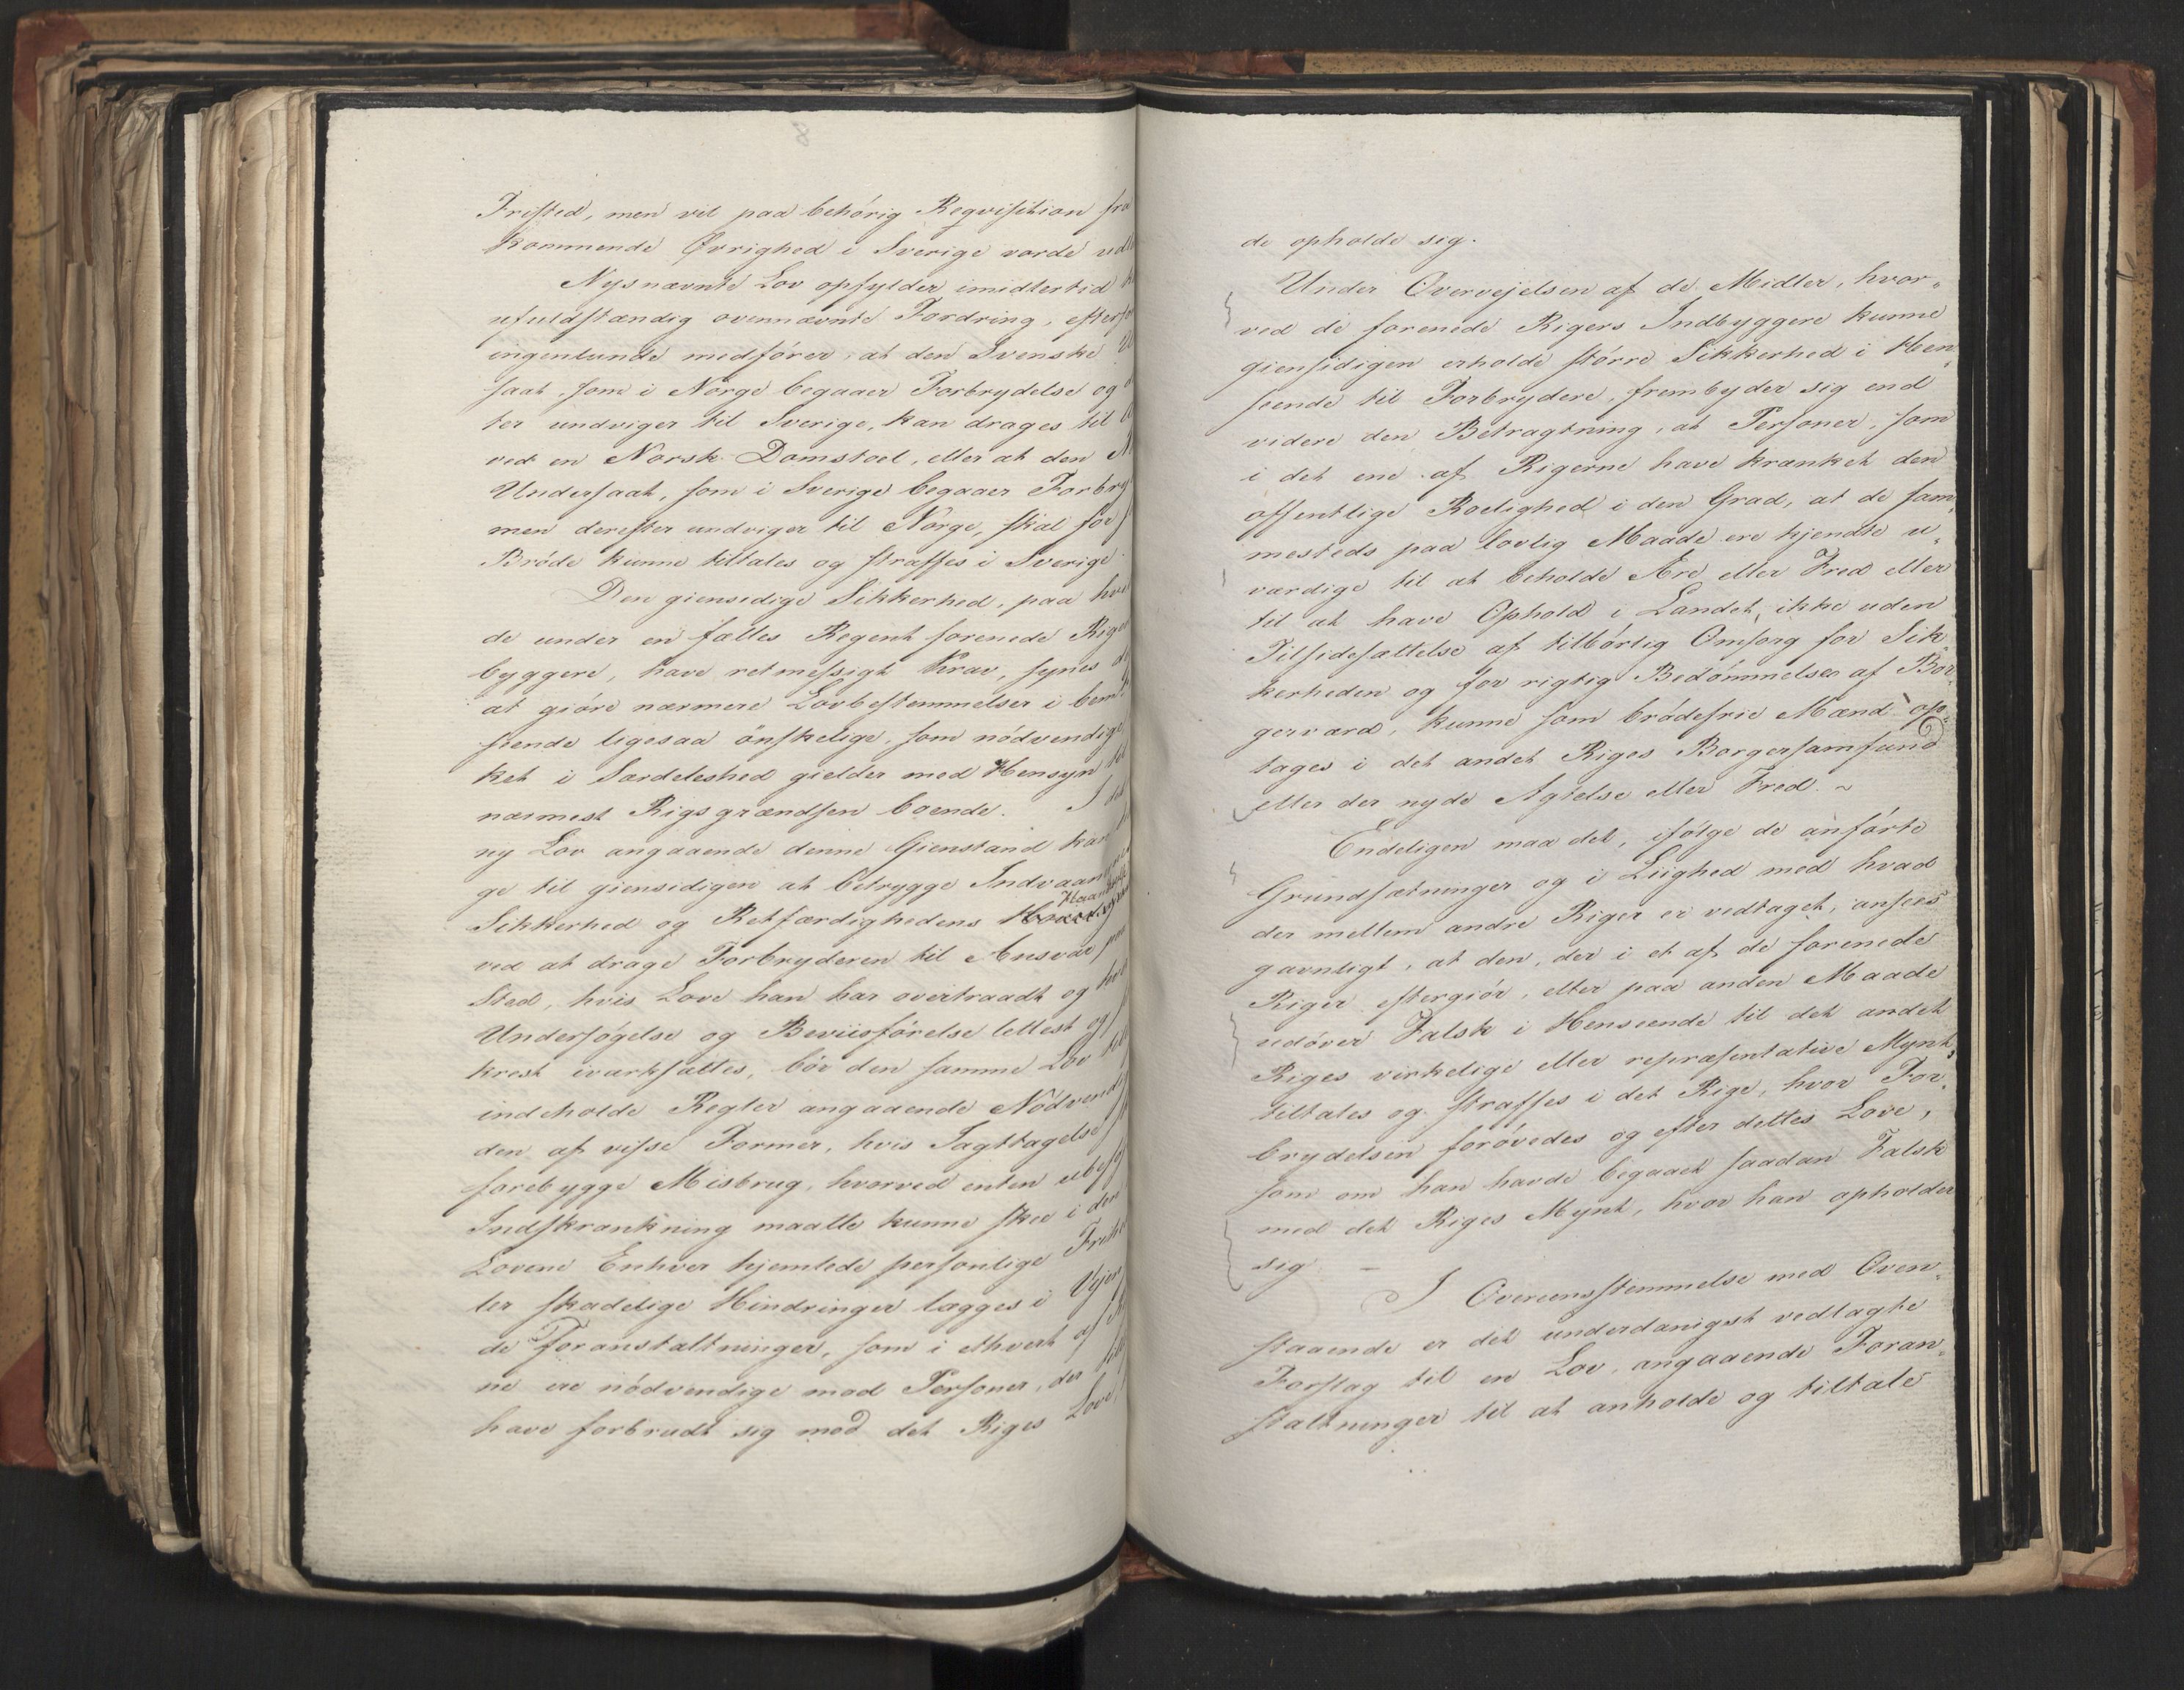 Fristed, men vil paa behörig Reqvisition fra
kommende Øvrighed i Sverige vorde udle
Nysnævnte Lov opfylder imidlertid
ufuldstændig ovennævnte Fordring, efterso
ingenlunde medfører, at den Svenske U
saat, som i Norge begaaer Forbrydelse og
ter undviger til Sverige, kan drages til
ved en Norsk Domstoel, eller at den
Undersaat, som i Sverige begaaer Forbry
men derefter undviger til Norge, skal for
Bröde kunne tiltales og straffes i Sverige.
Den giensidige Sikkerhed, paa hvi
de under en fælles Regent forenede Rige
byggere, have retmessigt Krav, synes
at giöre nærmere Lovbestemmelser i bem
seende ligesaa önskelige, som nödvendige,
ket i Særdeleshed gielder med Hensyn til
nærmest Rigsgrændsen boende. I det
ny Lov angaaende denne Gienstand kan
ge til giensidigen at betrygge Indvaan
Sikkerhed og Retfærdighedens
ved at drage Forbryderen til Ansvar paa
Sted, hvis Love han har overtraadt og hvor
Undersögelse og Beviisförelse lettest og
krest iværksættes, bör den samme Lov
indeholde Regler angaaende Nödvendig
den af visse Former, hvis Iagttagelse
forebygge Misbrug, hvorved enten ubeföj
Indskrænkning maatte kunne skee i den
Lovene Enhver hjemlede personlige Frihe
ler skadelige Hindringer lægges i Vejen
de Foranstaltninger, som i ethvert af
ne ere nödvendige mod Personer, der
have forbrudt sig mod det Riges Love,
de opholde sig.
Under Overvejelsen af de Midler, hvor„
ved de forenede Rigers Indbyggere kunne
giensidigen erholde större Sikkerhed i Hen„
seende til Forbrydere, frembyder sig end
videre den Betragtning, at Personer, som
i det ene af Rigerne have krænket den
offentlige Roelighed i den Grad, at de sam„
mesteds paa lovlig Maade ere kjendte u„
værdige til at beholde Ære eller Fred eller
til at have Ophold i Landet, ikke uden
Tilsidesættelse af tilbörlig Omsorg for Sik„
kerheden og for rigtig Bedömmelse af Bor„
gerværd, kunne som brödefrie Mænd op„
tages i det andet Riges Borgersamfund
eller der nyde Agtelse eller Fred. ~
Endeligen maa det, ifölge de anförte
Grundsætninger og i Liighed med hvad
der mellem andre Riger er vedtaget, ansees
gavnligt, at den, der i et af de forenede
Riger eftergiör, eller paa anden Maade
udöver Falsk i Henseende til det andet
Riges virkelige eller repræsentative Mynt,
tiltales og straffes i det Rige, hvor For„
brydelsen forövedes og efter dettes Love,
som om han havde begaaet saadan Falsk
med det Riges Mynt, hvor han opholder
sig. –
I Overeensstemmelse med Oven„
staaende er det underdanigst vedlagte
Forslag til en Lov, angaaende Foran„
staltninger til at anholde og tiltale